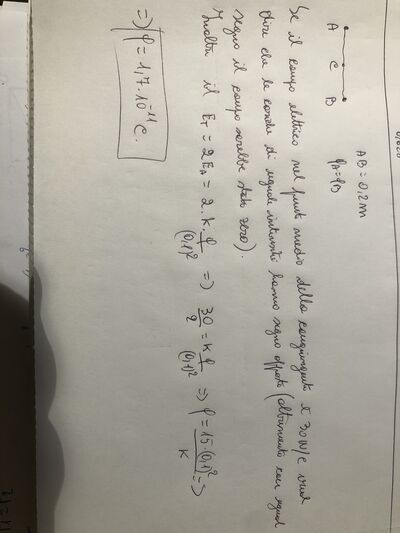 A C B
AB = 0,2 m
qA = qB
Se il campo elettrico nel punto medio della congiungente è 30 N/C vuol
dire che le cariche di uguale intensità hanno segno opposto (altrimenti con ugual
segno il campo sarebbe stato zero).
Inoltre il ET = 2EA = 2 · k · q/(0,1)² => 30/2 = k q/(0,1)² => q = 15·(0,1)²/k =>
=> q = 1,7 · 10⁻¹¹ C.